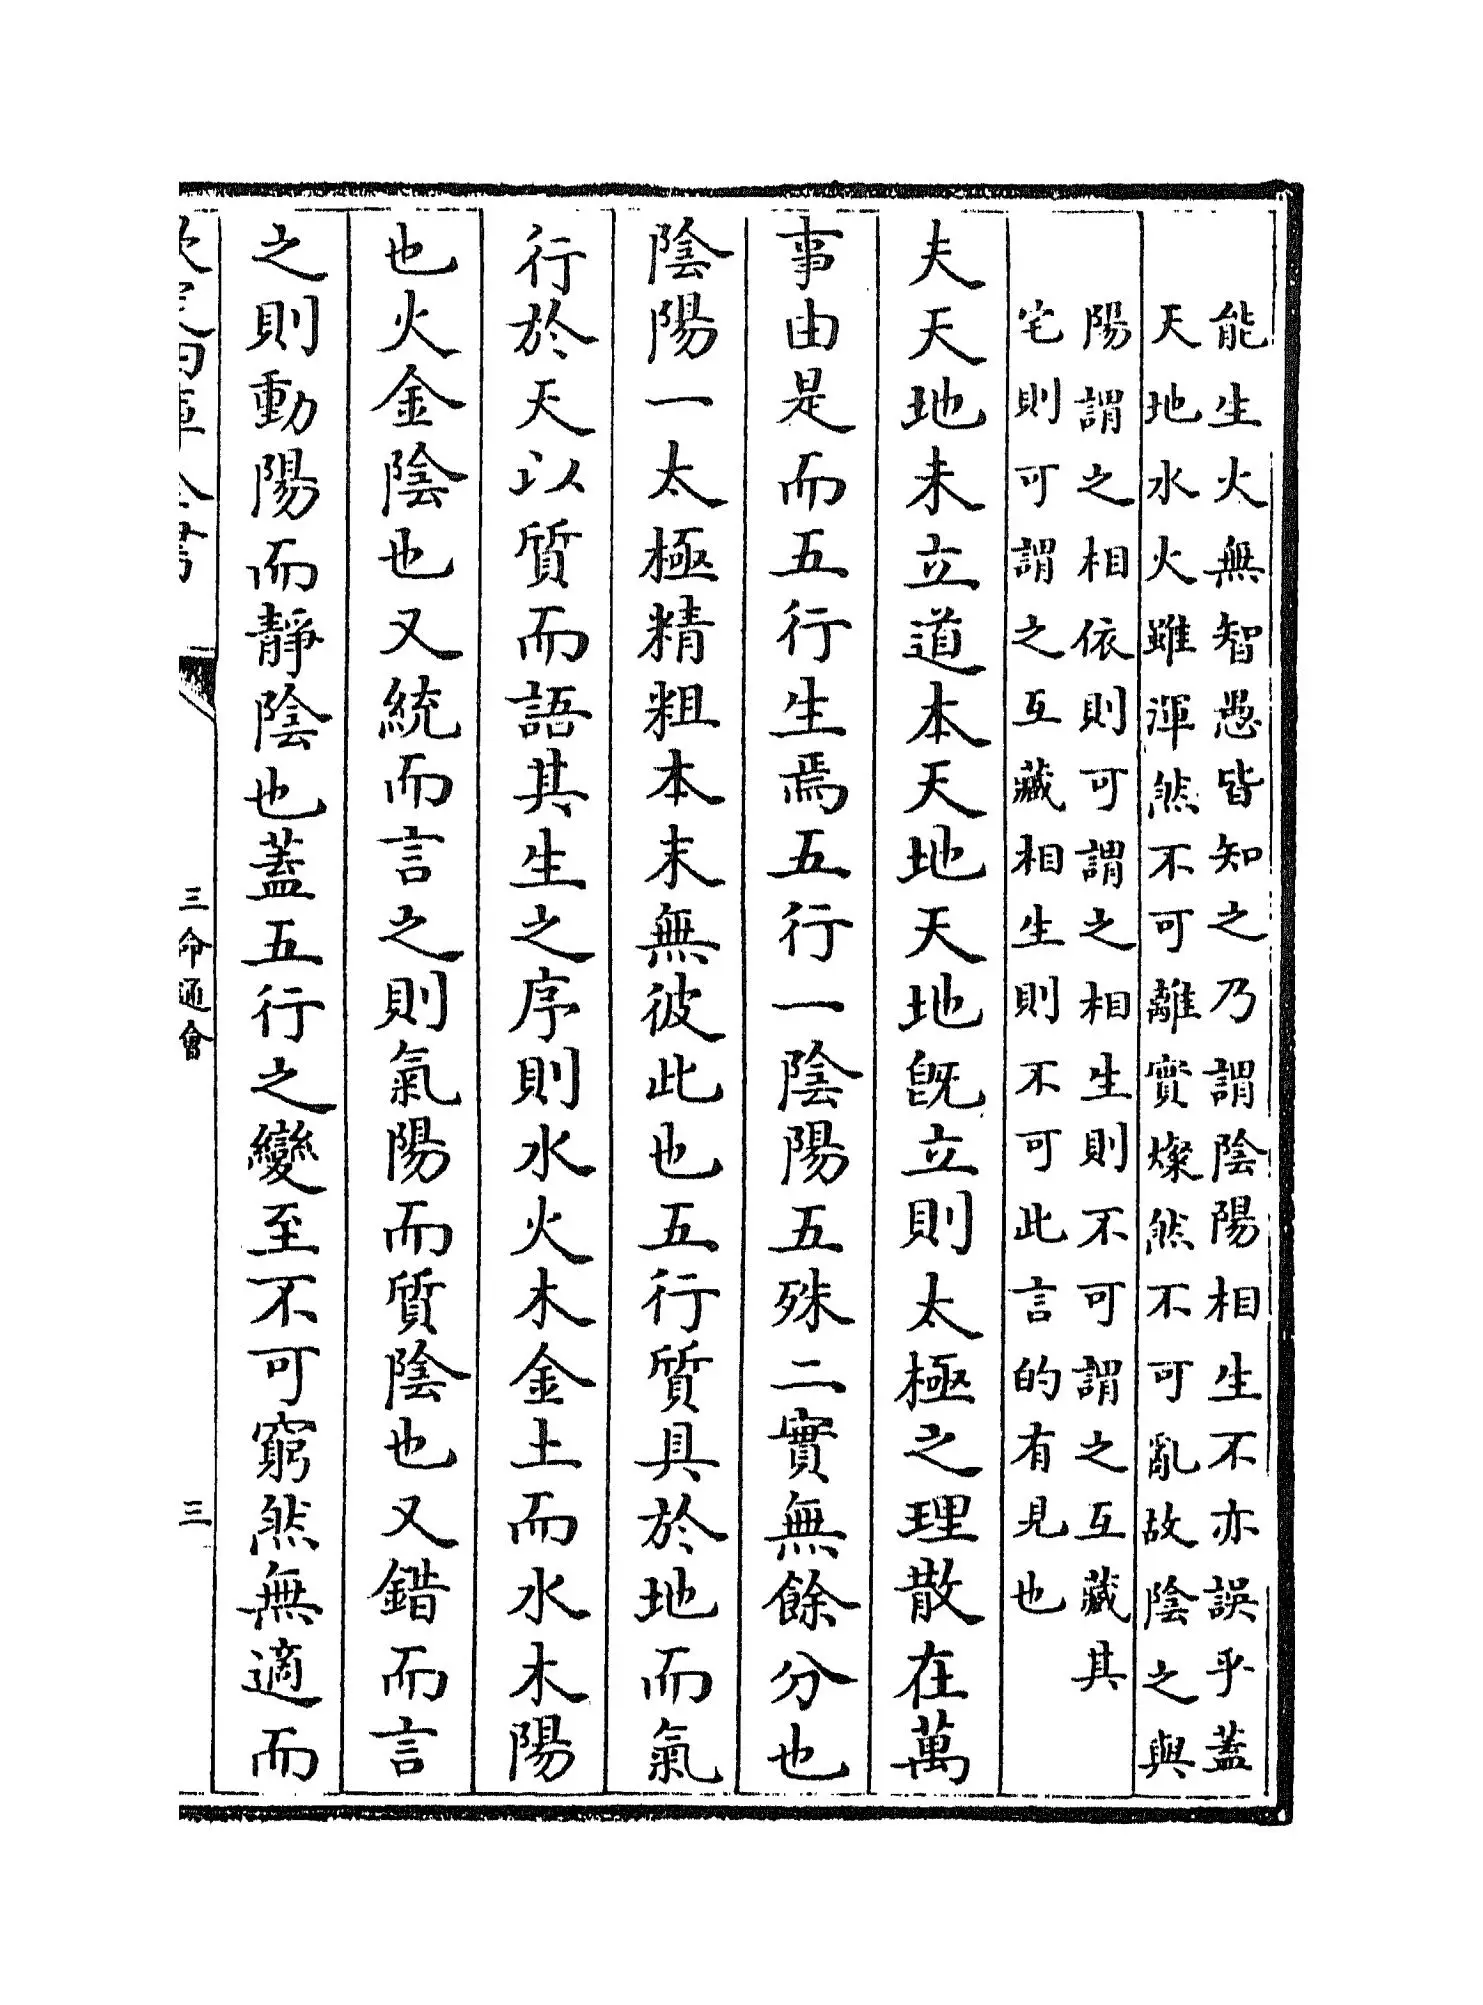 能生火無智愚皆知之乃謂陰陽相生不亦誤乎蓋
天地水火雖渾然不可離實燦然不可亂故陰之與
陽謂之相依則可謂之相生則不可謂之互藏其
宅則可謂之互藏相生則不可此言的有見也
夫天地未立道本天地天地既立則太極之理散在萬
事由是而五行生焉五行一陰陽五殊二實無餘分也
陰陽一太極精粗本末無彼此也五行質具於地而氣
行於天以質而語其生之序則水火木金土而水木陽
也火金陰也又統而言之則氣陽而質陰也又錯而言
之則動陽而靜陰也蓋五行之變至不可窮然無適而
欽定四庫全書
三命通會
三